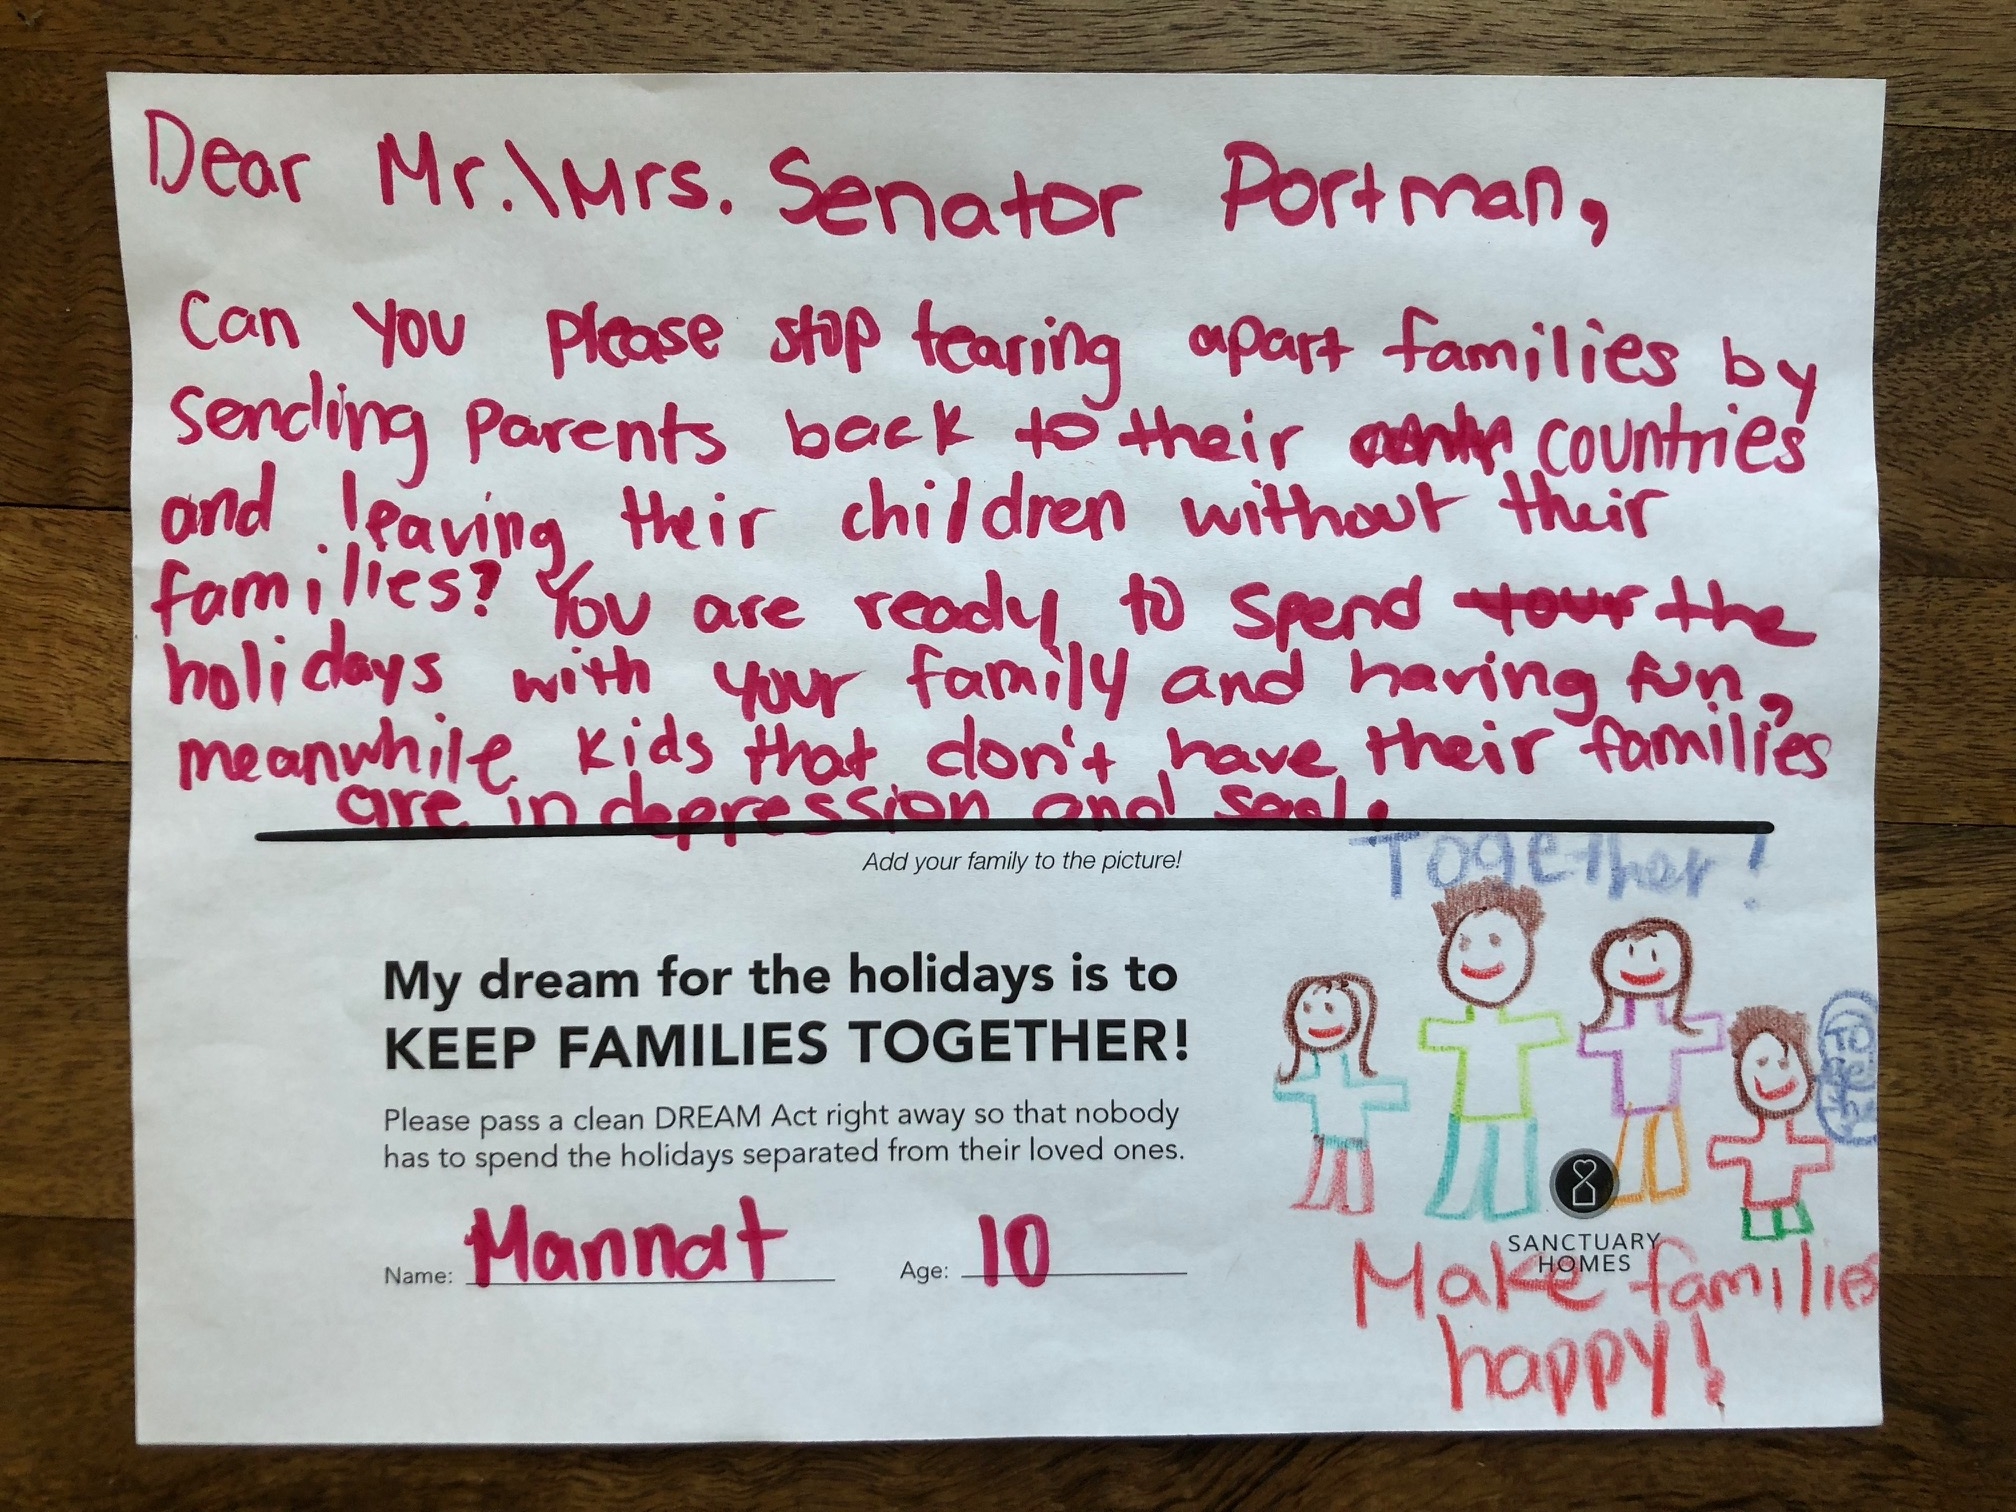 Dear Mr.\Mrs. Senator Portman,
Can you please stop tearing apart families by
sending parents back to their countries
and leaving their children without their
families? You are ready to spend your the
holidays with your family and having fun,
meanwhile kids that don't have their families
are in depression and sad.
Add your family to the picture!
Together!
My dream for the holidays is to
KEEP FAMILIES TOGETHER!
Please pass a clean DREAM Act right away so that nobody
has to spend the holidays separated from their loved ones.
Name: Mannat Age: 10
To
ge
the
SANCTUARY
HOMES
Make families
happy!